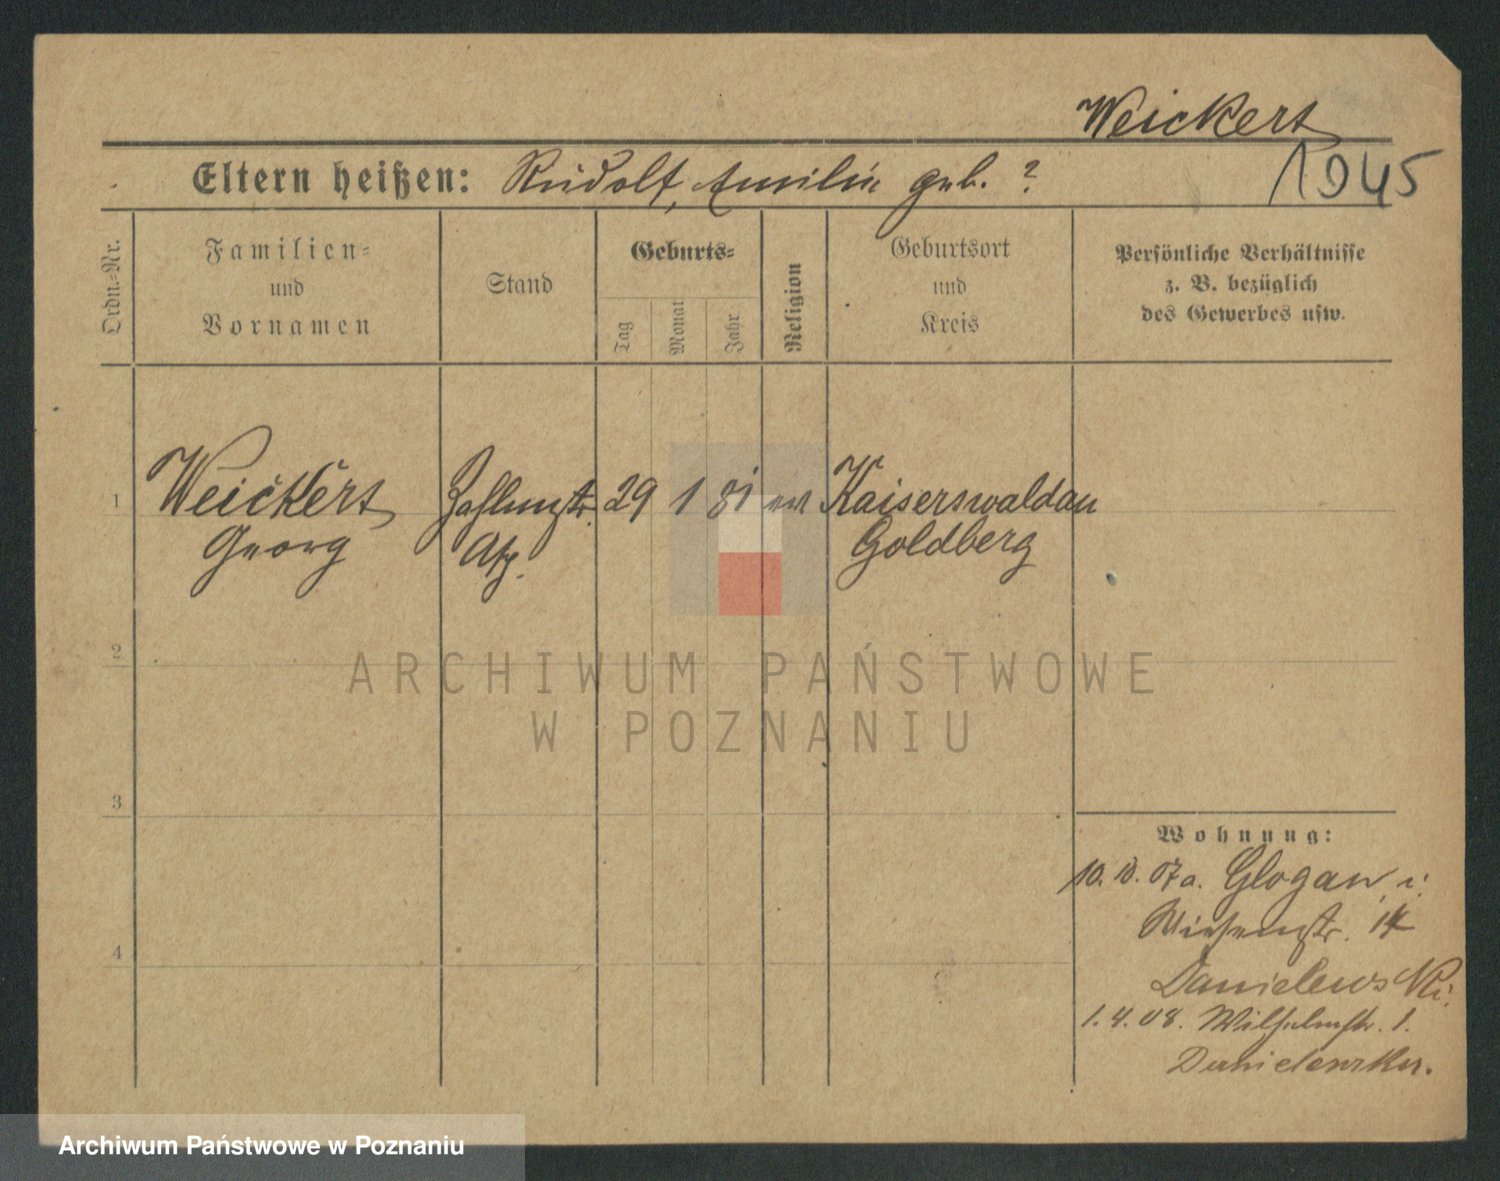 Weickert
1945
Eltern heißen: Rudolf, Emilie geb. ?
Ordn.-Nr.
Familien-
und
Vornamen
Stand
Geburts-
Tag
Monat
Jahr
Religion
Geburtsort
und
Kreis
Persönliche Verhältnisse
z. B. bezüglich
des Gewerbes usw.
1
Weickert
Georg
Zahlmstr.
29 1 81
Kaiserswaldau
Goldberg
2
ARCHIWUM PAŃSTWOWE
W POZNANIU
3
Wohnung:
10. 10. 07 a. Glogau
14
Danielewski
4
1. 4. 08. Wilhelmstr. 1.
Archiwum Państwowe w Poznaniu